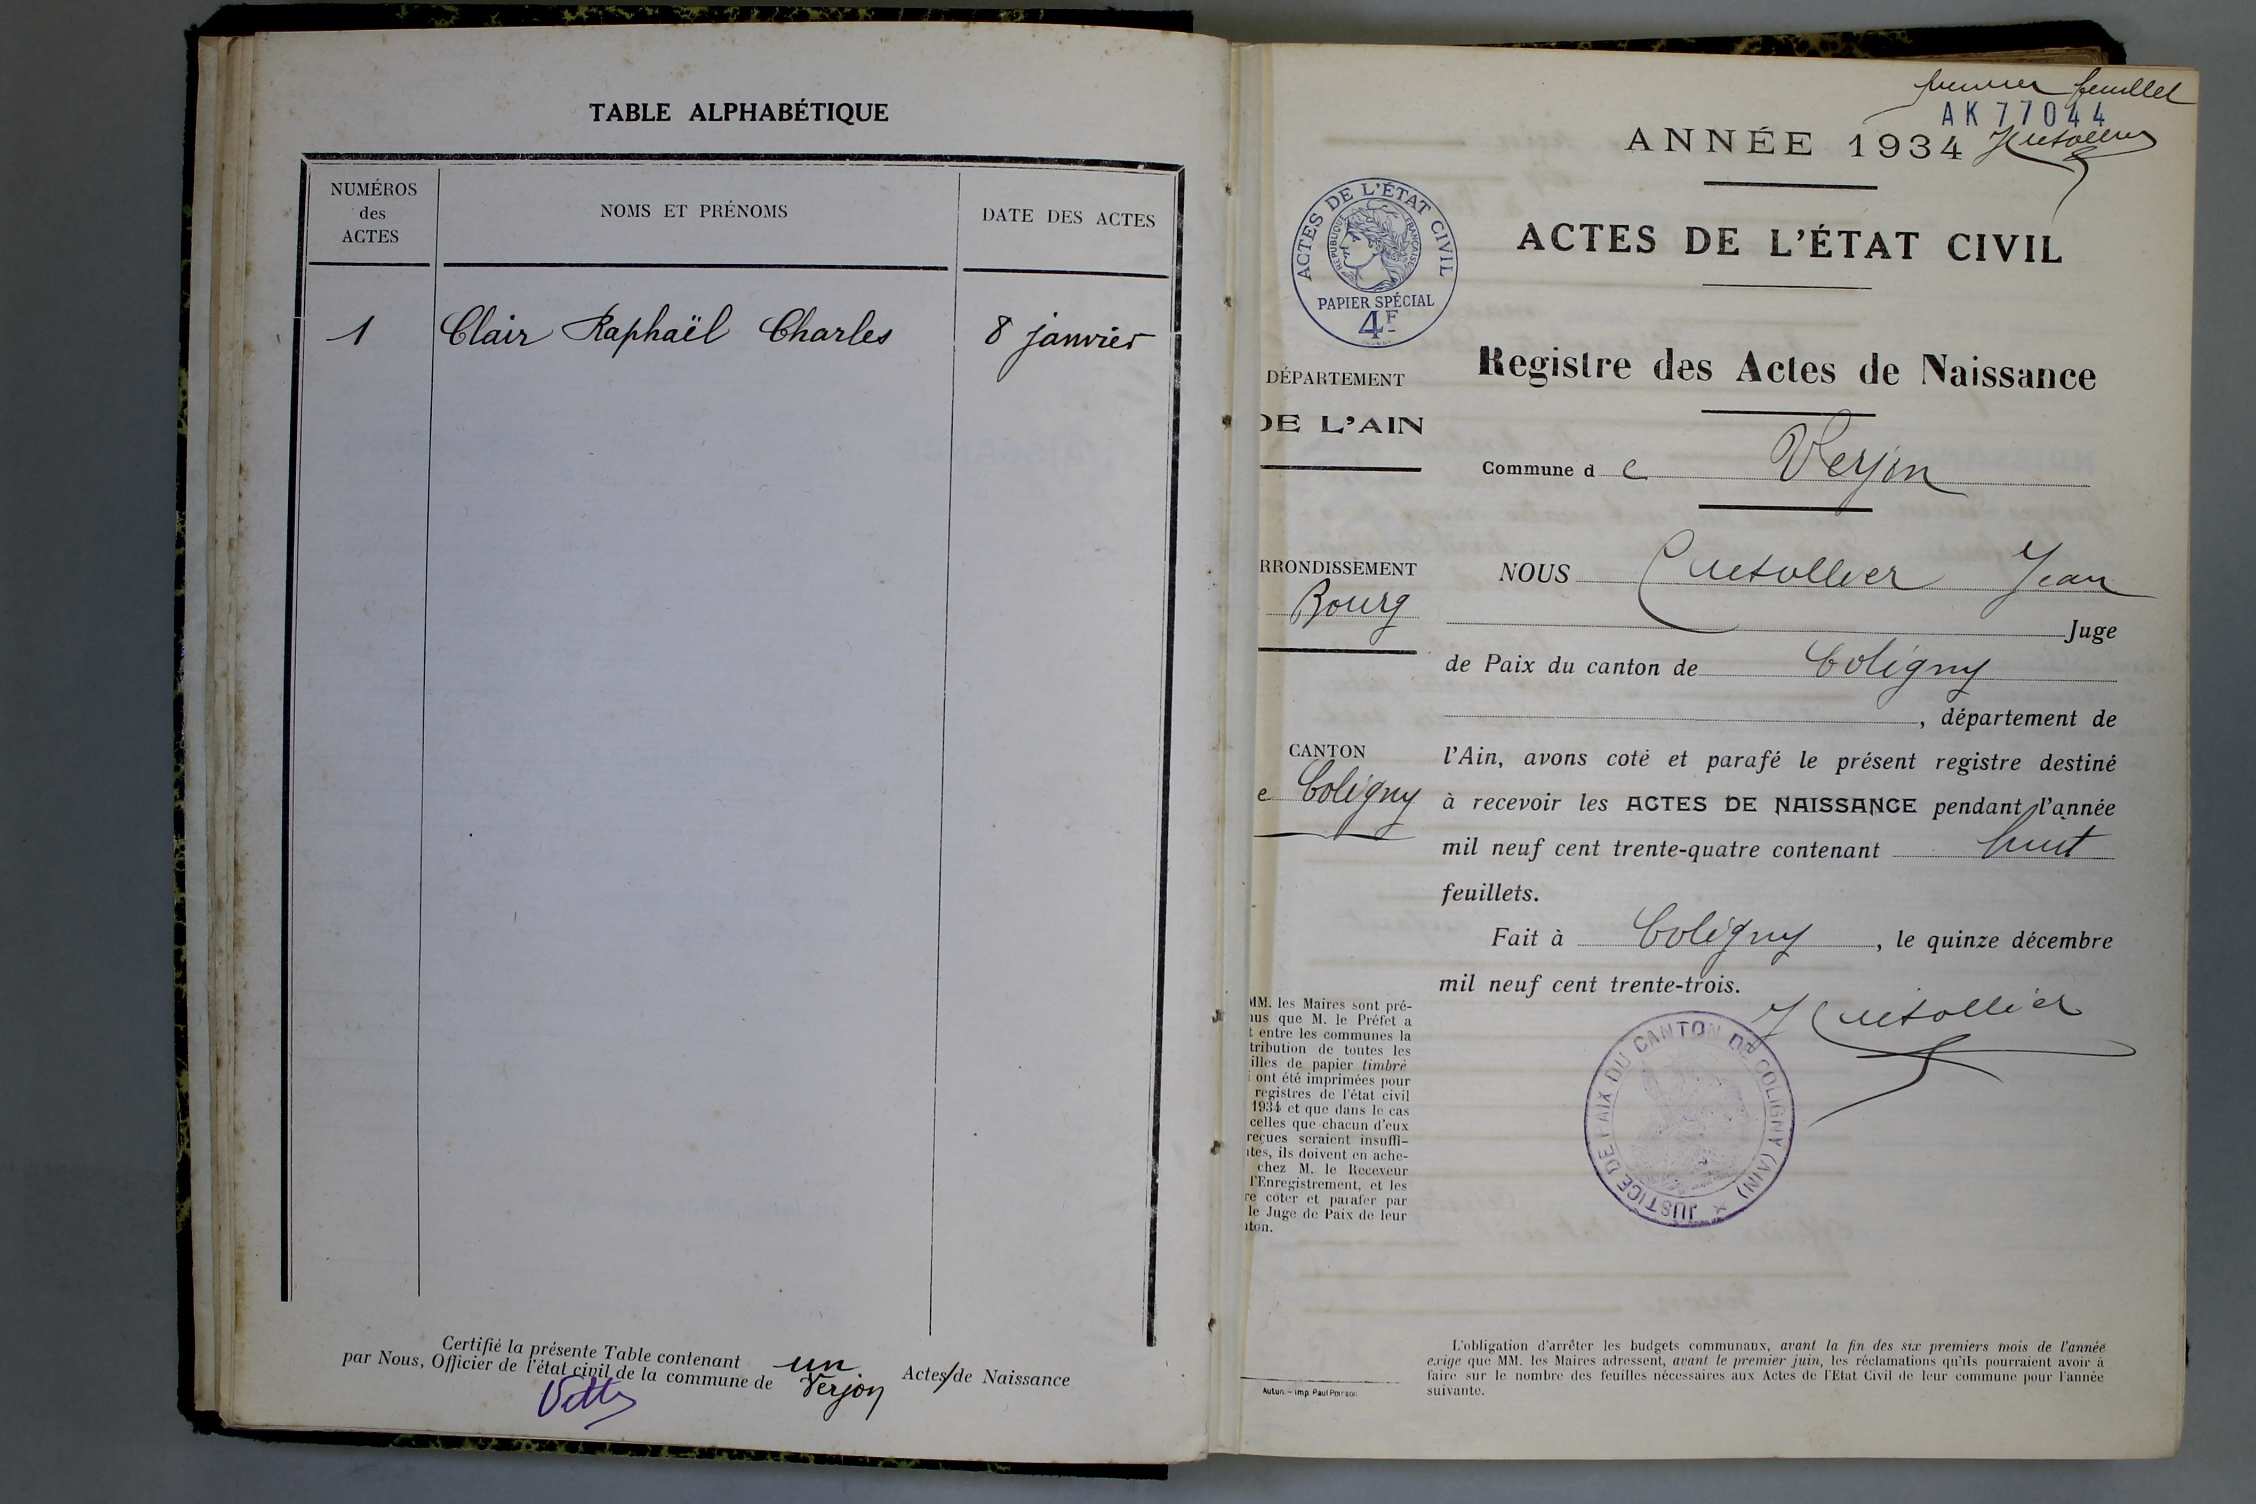 TABLE ALPHABÉTIQUE
NUMÉROS
des
ACTES
NOMS ET PRÉNOMS
DATE DES ACTES
1 Clair Raphaël Charles 8 janvier
Certifié la présente Table contenant un Actes de Naissance
par Nous, Officier de l'état civil de la commune de Verjon
premier feuillet
AK 77044
ANNÉE 1934
ACTES DE L'ÉTAT CIVIL
ACTES DE L'ÉTAT CIVIL
RÉPUBLIQUE FRANÇAISE
PAPIER SPÉCIAL
4F
Registre des Actes de Naissance
DÉPARTEMENT
DE L'AIN
Commune de Verjon
RRONDISSEMENT
Bourg
NOUS Cuetollier Jean
Juge
de Paix du canton de Coligny
, département de
CANTON
e Coligny
l'Ain, avons coté et parafé le présent registre destiné
à recevoir les ACTES DE NAISSANCE pendant l'année
mil neuf cent trente-quatre contenant huit
feuillets.
Fait à Coligny, le quinze décembre
mil neuf cent trente-trois.
J Cuetollier
JUSTICE DE PAIX DU CANTON DE COLIGNY (AIN)
MM. les Maires sont pré-
nus que M. le Préfet a
t entre les communes la
tribution de toutes les
illes de papier timbré
i ont été imprimées pour
registres de l'état civil
1934 et que dans le cas
celles que chacun d'eux
reçues seraient insuffi-
ntes, ils doivent en ache-
chez M. le Receveur
l'Enregistrement, et les
re coter et parafer par
le Juge de Paix de leur
nton.
Autun. – Imp. Paul Poirson
L'obligation d'arrêter les budgets communaux, avant la fin des six premiers mois de l'année
exige que MM. les Maires adressent, avant le premier juin, les réclamations qu'ils pourraient avoir à
faire sur le nombre des feuilles nécessaires aux Actes de l'Etat Civil de leur commune pour l'année
suivante.